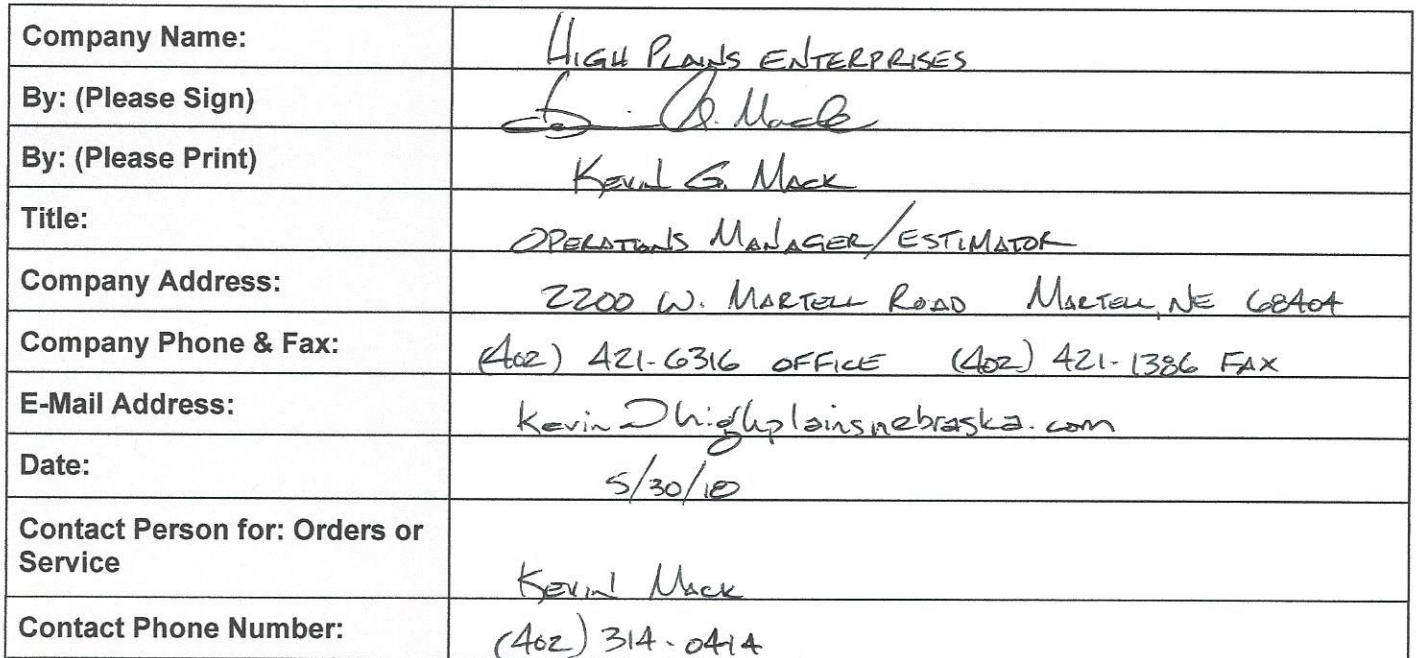 Company Name: HIGH PLAINS ENTERPRISES
By: (Please Sign) Mack
By: (Please Print) KEVIN G. MACK
Title: OPERATIONS MANAGER/ESTIMATOR
Company Address: 2200 W. MARTELL ROAD MARTELL, NE 68404
Company Phone & Fax: (402) 421-6316 OFFICE (402) 421-1386 FAX
E-Mail Address: kevin@highplainsnebraska.com
Date: 5/30/18
Contact Person for: Orders or
Service KEVIN MACK
Contact Phone Number: (402) 314-0414